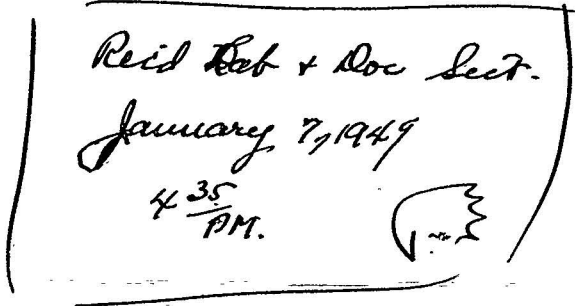 Reid Lab + Doc Sect.
January 7, 1949
4 35
PM.